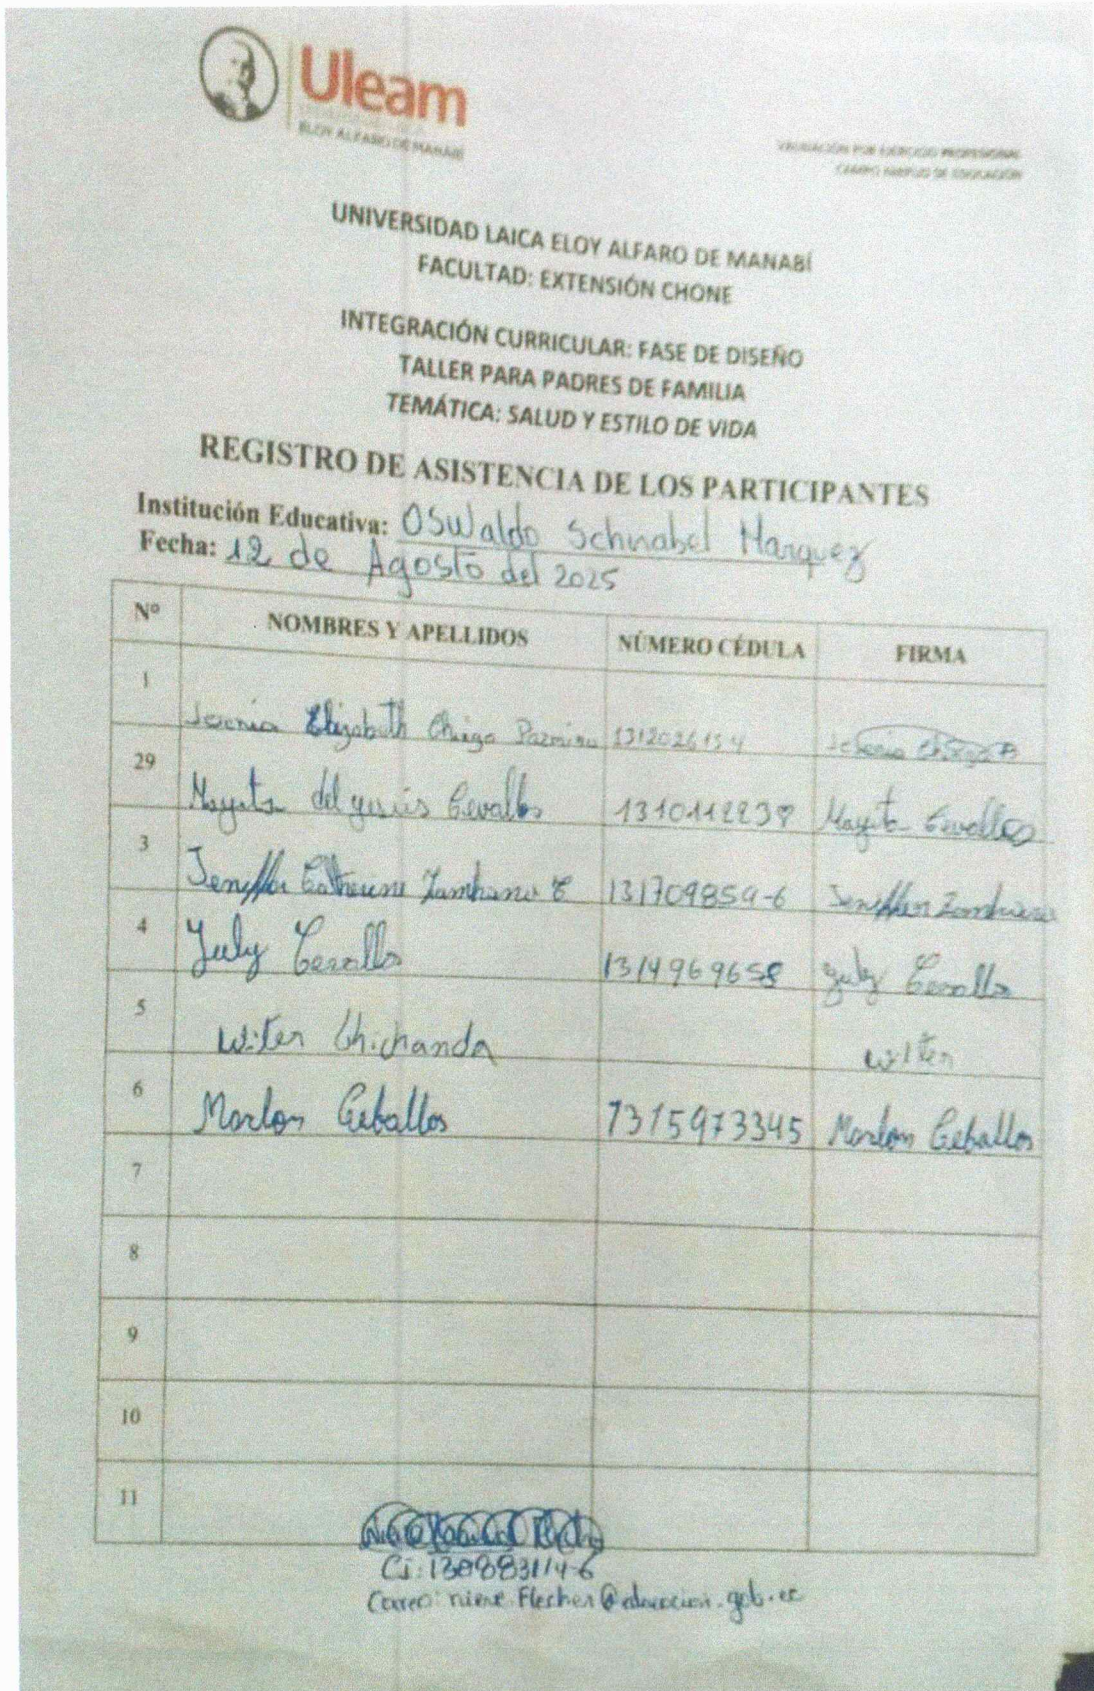 Uleam
ELOY ALFARO DE MANABÍ
VALIDACIÓN POR EJERCICIO PROFESIONAL
CAMPO AMPLIO DE EDUCACIÓN
UNIVERSIDAD LAICA ELOY ALFARO DE MANABÍ
FACULTAD: EXTENSIÓN CHONE
INTEGRACIÓN CURRICULAR: FASE DE DISEÑO
TALLER PARA PADRES DE FAMILIA
TEMÁTICA: SALUD Y ESTILO DE VIDA
REGISTRO DE ASISTENCIA DE LOS PARTICIPANTES
Institución Educativa: Oswaldo Schnabel Marquez
Fecha: 12 de Agosto del 2025
Nº NOMBRES Y APELLIDOS NÚMERO CÉDULA FIRMA
1 Elizabeth
29 Mayita del Cevallos Mayita Cevallos
3 Jeniffer Zambrano 131709859-6 Jeniffer Zambrano
4 July Cevallos 1314969658 July Cevallos
5 Witer Chichanda wilter
6 Marlon Ceballos 1315973345 Marlon Ceballos
7
8
9
10
11
Ci:
Correo: